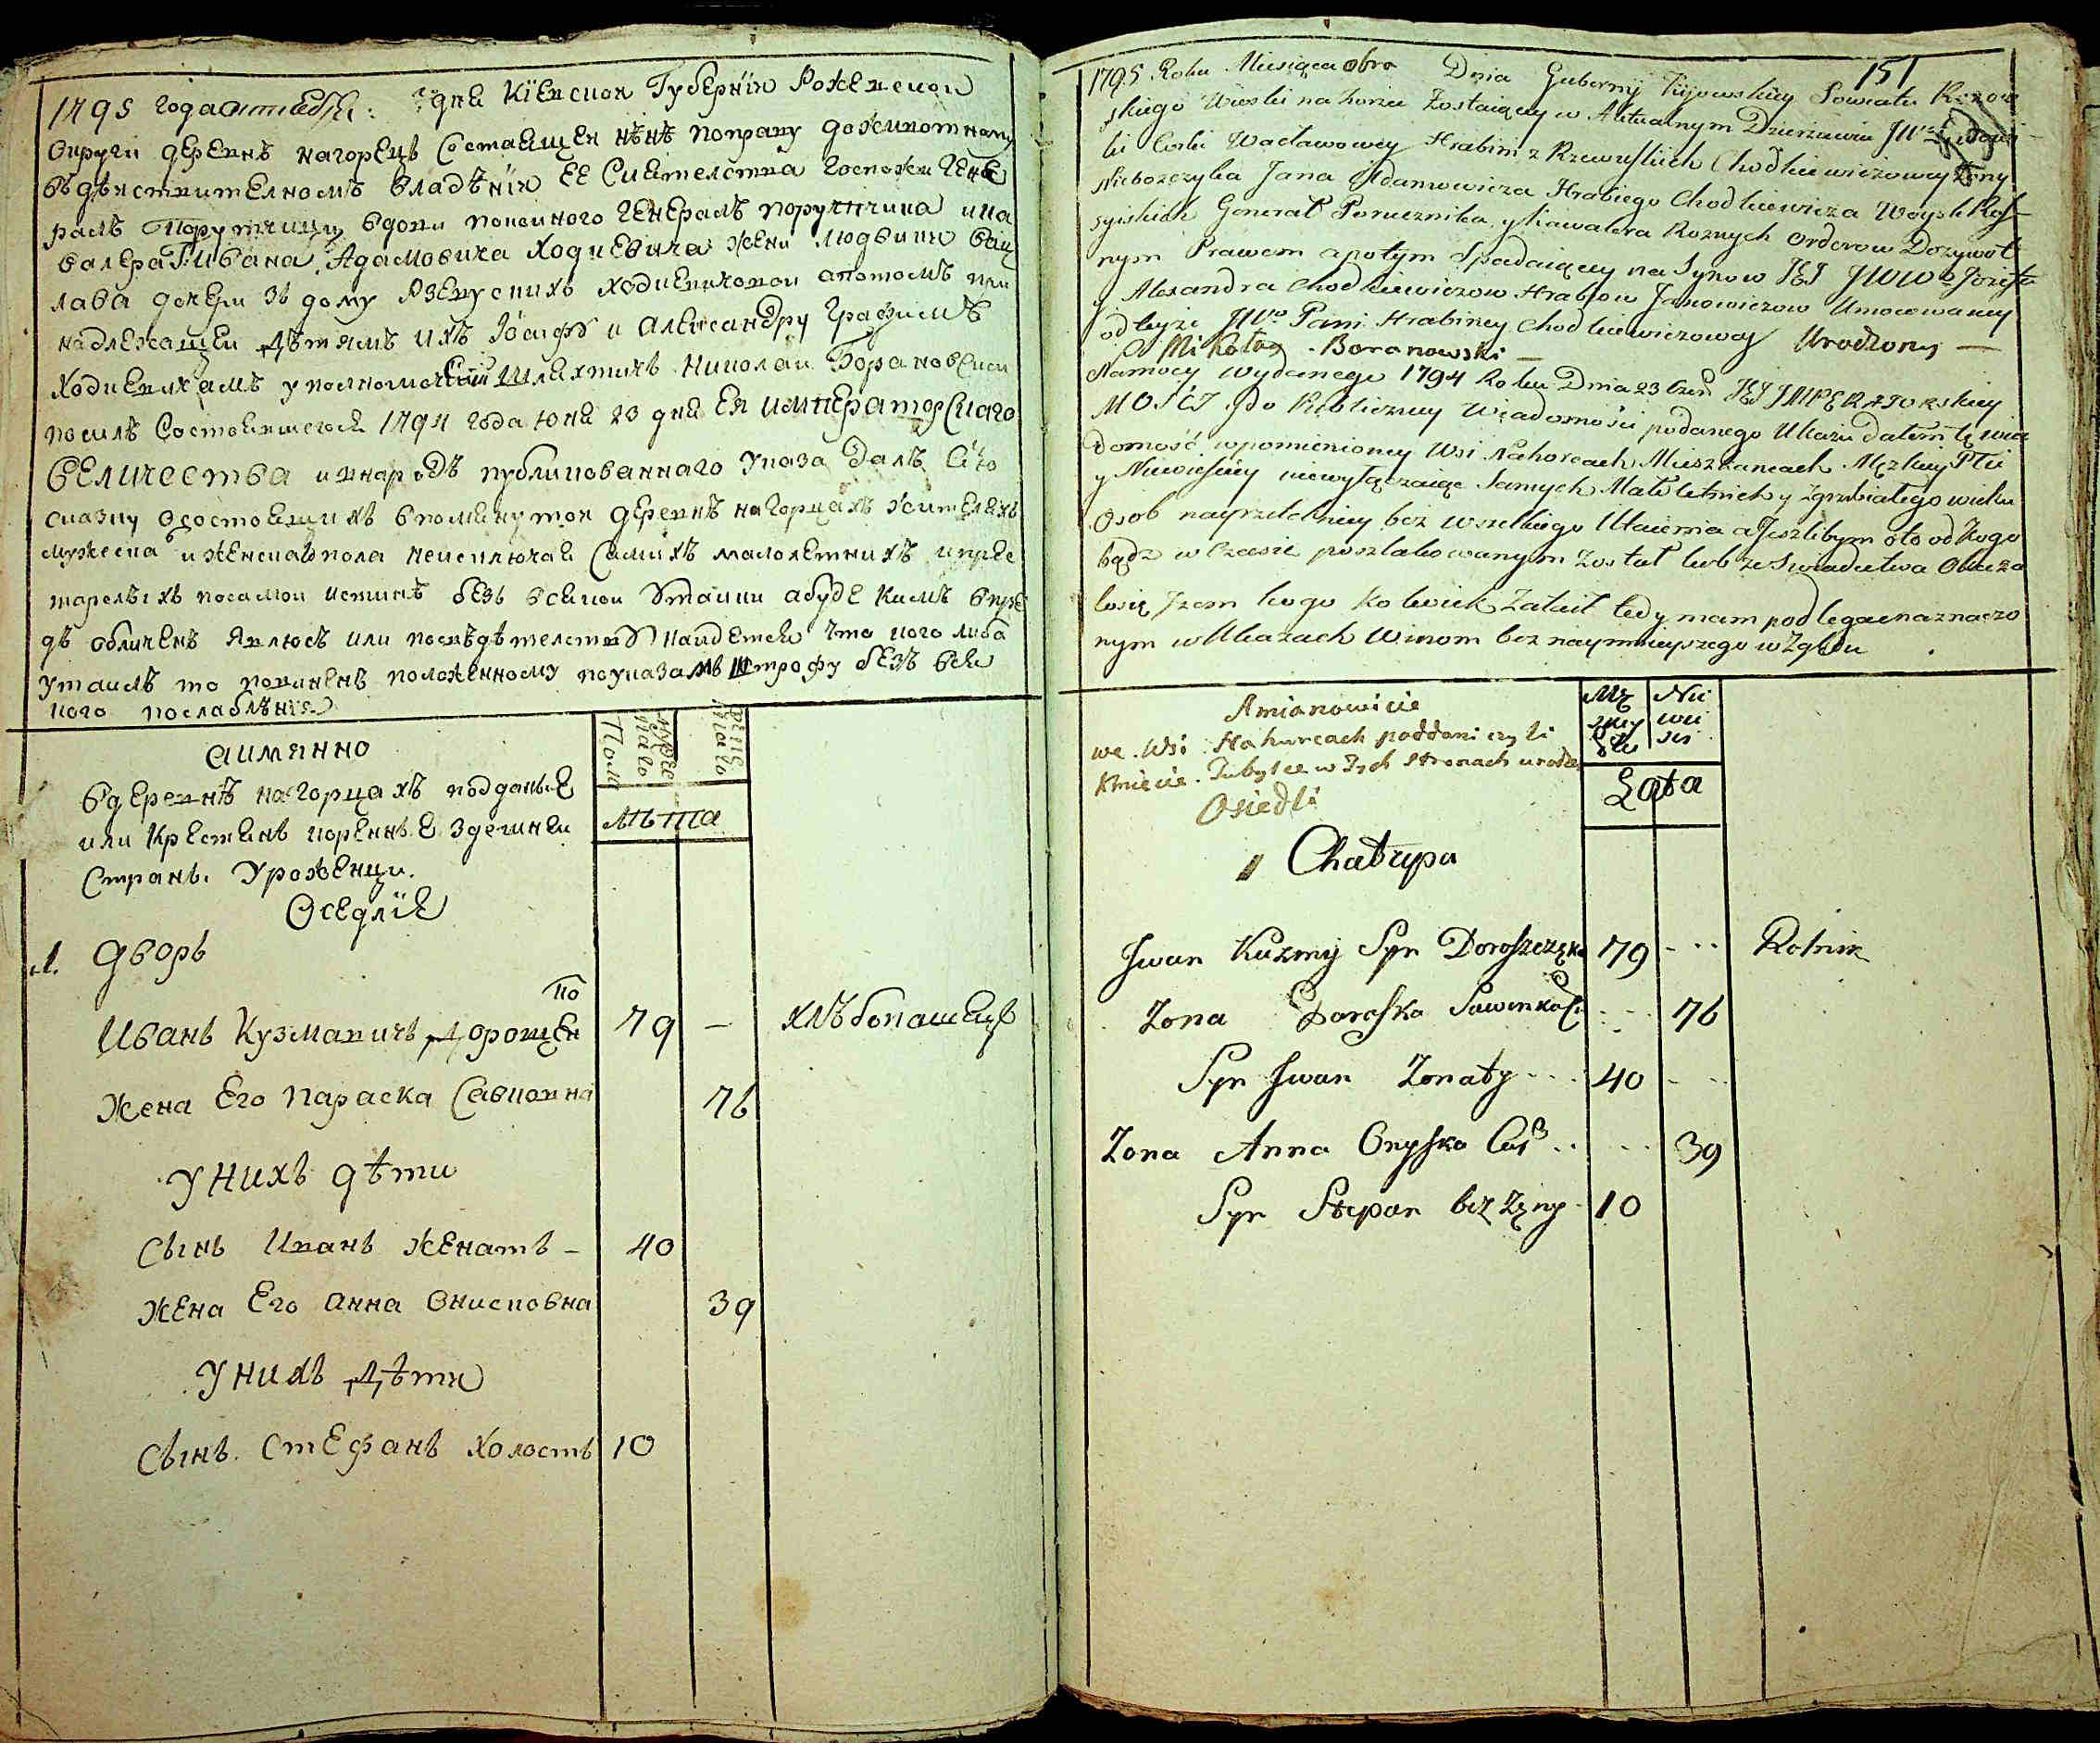 1795 года октября: дня Кіевской Губерніи Рожевской
округи деревнѣ Нагорецъ состаящей нѣнѣ поправу доживотному
въдѣиствителномъ владѣніи ЕЕ Сиятелства Госпожи Гене
ралъ Порутчицы вдовы покоиного Генералъ порутчика и ка
валера Ивана Адамовича Ходкевича жены Людвики Вац
лава дочери зъ дому Рзевускихъ Ходкевичовои апотомъ при
надлежащеи дѣтямъ ихъ Іосифу и Александру Графамъ
Ходкевичамъ уполномоченыи шляхтичъ Николаи Борановски
посилѣ состоявшегося 1794 года юня 23 дня ЕЯ ИМПЕРАТОРСкаго
ВЕЛИЧЕСТВА ивнародъ публикованнаго указа далъ сію
сказку осостоящихъ впомянутои деревнѣ нагорцахъ жителяхъ
мужеска и женска пола неисключая самихъ малолетнихъ ипрес
тарелыхъ посамои истинѣ безъ всякои утаики абуде кимъ впре
дъ обличенъ явлюсъ или посвѣдѣтелству наидется что кого либо
утаилъ то повиненъ положенному поуказамъ штрофу безъ вся
кого послаблѣния
аимянно
вдеревнѣ нагорцахъ подданые
или крестяне коренные здешнеи
страны. Уроженци.
Оседлія
Пола
мужескаго
женскаго
лѣта
1. дворъ
ко
Иванъ Кузмавичъ Дорошен 79 — хлѣбопашецъ
Жена Его Параска Савковна 76
У нихъ дѣти
Сынъ Иванъ женатъ – 40
жена Его анна Онисковна 39
У нихъ дѣти
Сынъ. Стефанъ холостъ 10
151
1795 Roku Miesiąca 8bra Dnia Gubernij Kijowskiey Powiatu Rożow
skiego Wioski nahorzec Zostaiącey w Aktualnym Dzierżawiu JWey Ludowi
ki Corki Wacławowey Hrabini z Rzewuskich Chodkiewiczowey Żony
Nieboszczyka Jana Adamowicza Hrabiego Chodkiewicza Woysk Ros
syiskich General Porucznika y Kawalera Roznych orderow Dozywot
nym Prawem apotym Spadaiącey na Synow JEJ JWWo Jozefa
y Alexandra Chodkiewiczow Hrabiow Janowiczow Umocowaney
od teyże JWey Pani Hrabiney Chodkiewiczowey Urodzony —
Mikołay Boranowski —
Namocy wydanego 1794 Roku Dnia 23 Czer JEJ IMPERATORskiey
MOSCI do Publiczney Wiadomości podanego Ukazu dałem tę wia
domość wpomienioney Wsi Nahorcach Mieszkancach Męzkiey Płci
y Niewieściey niewyłączaiąc Samych Małoletnich y zgrzybiałego wieku
Osob nayrzetelniey bez wszelkiego Utaienia aJeszlibym oto od kogo
bądz w Czasie poszlakowanym został lub ze swiadectwa Okaza
łosię Izem kogo kolwiek Zataił tedy mam podlegac naznaczo
nym w Ukazach Winom bez naymnieyszego wzgledu
Amianowicie
we. Wsi Nahorcach poddani czyli
kmiecie. Tubylce w Tych stronach urodze
Osiedli
Mę zkiey Płci
Nie wie sci
Lata
1 Chałupa
Jwan Kuzmij Syn Doroszczęko 79 - .. Rolnik
Zona Paraska Sawenko C. 76
Syn Jwan Zonaty .. 40 - ..
Zona Anna Onysko Cor .. 39
Syn Stepan bez Zęny 10